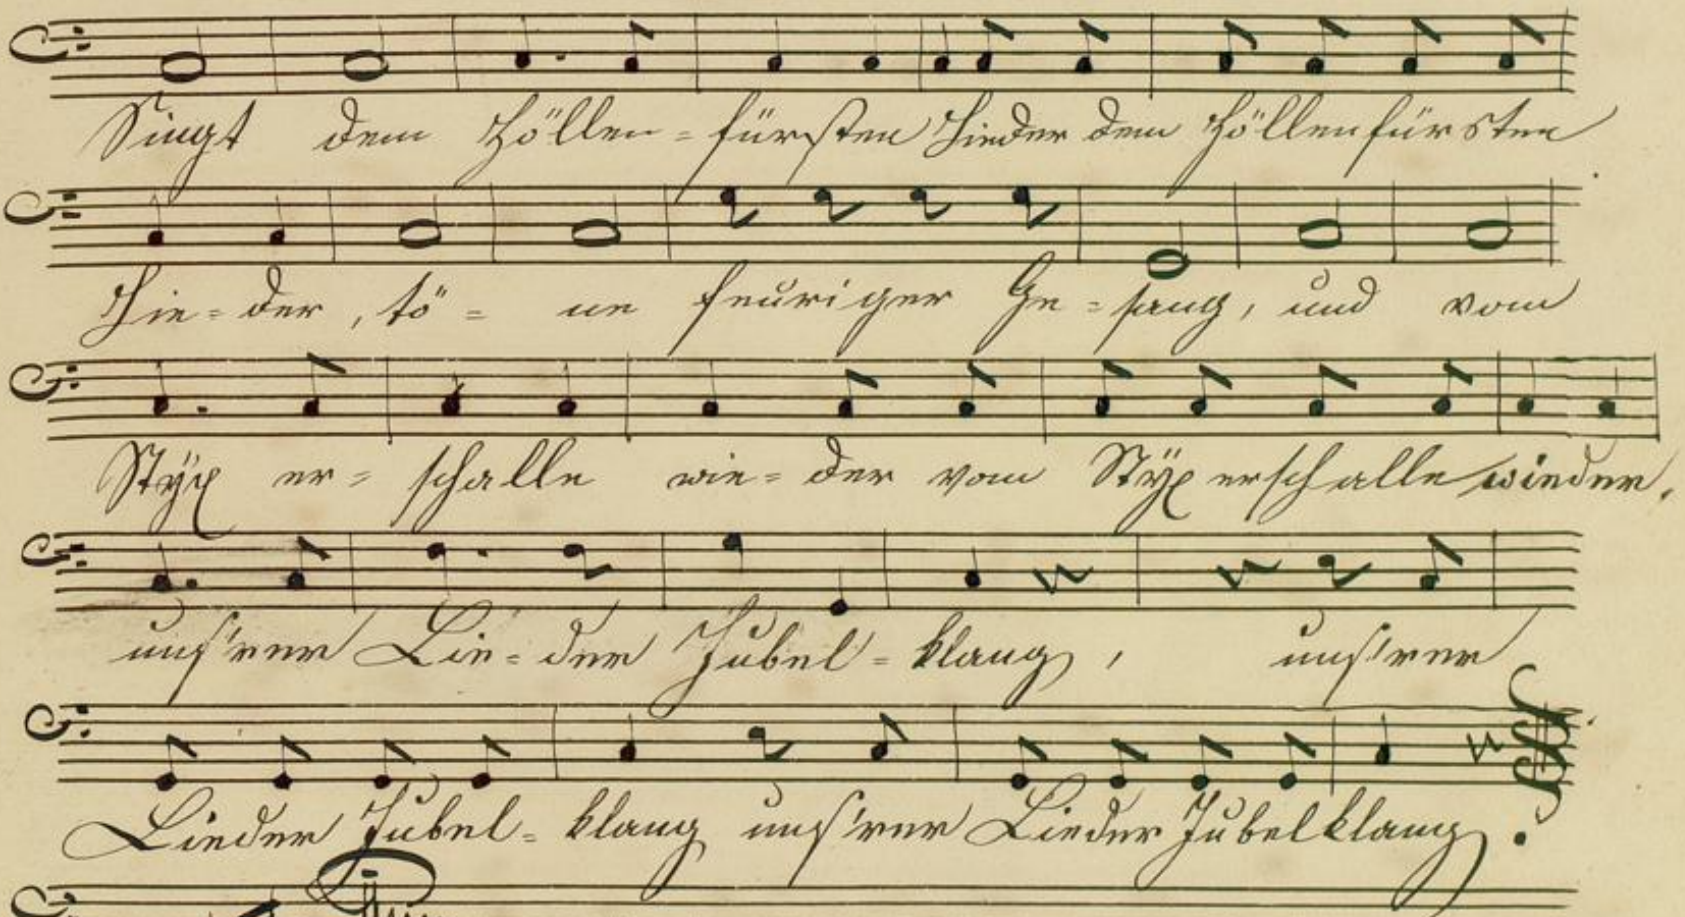 Singt dem Höllen=fürsten Hieder dem Höllenfürsten
Hie=der, tö=ne feuriger Ge=sang, und vom
Styx er=schalle wie=der vom Styx erschalle wieder,
uns'rer Lie=der Jubel=klang, uns'rer
Lieder Jubel=klang uns'rer Lieder Jubelklang.